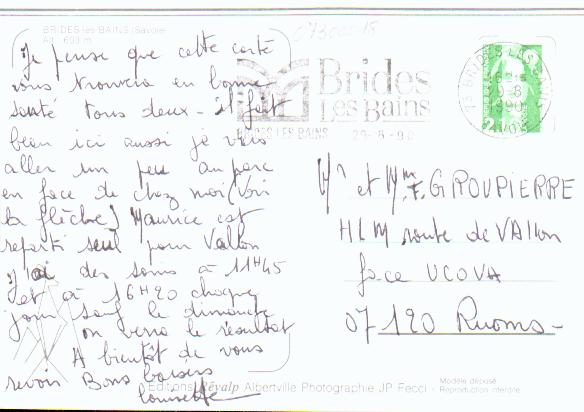 BRIDES-les-BAINS (Savoie)
Alt. 600 m
Je pense que cette carte
vous trouvera en bonne
santé tous deux - il fait
beau ici aussi je vais
aller un peu au parc
en face de chez moi (voir
la flèche) Maurice est
reparti seul pour Vallon
J'ai des soins à 11H45
et à 16H20 chaque
jour sauf le dimanche
on verra le résultat
A bientôt de vous
revoir Bons baisers
Lousette
Brides
Les Bains
BRIDES LES BAINS 29-8-90
BRIDES LES BAINS
29-8
1990
2,10
Mr et Mme F. GROUPIERRE
HLM route de Vallon
face UCOVA
07120 Ruoms
Editions Révalp Albertville Photographie JP Fecci - Modèle déposé
Reproduction interdite